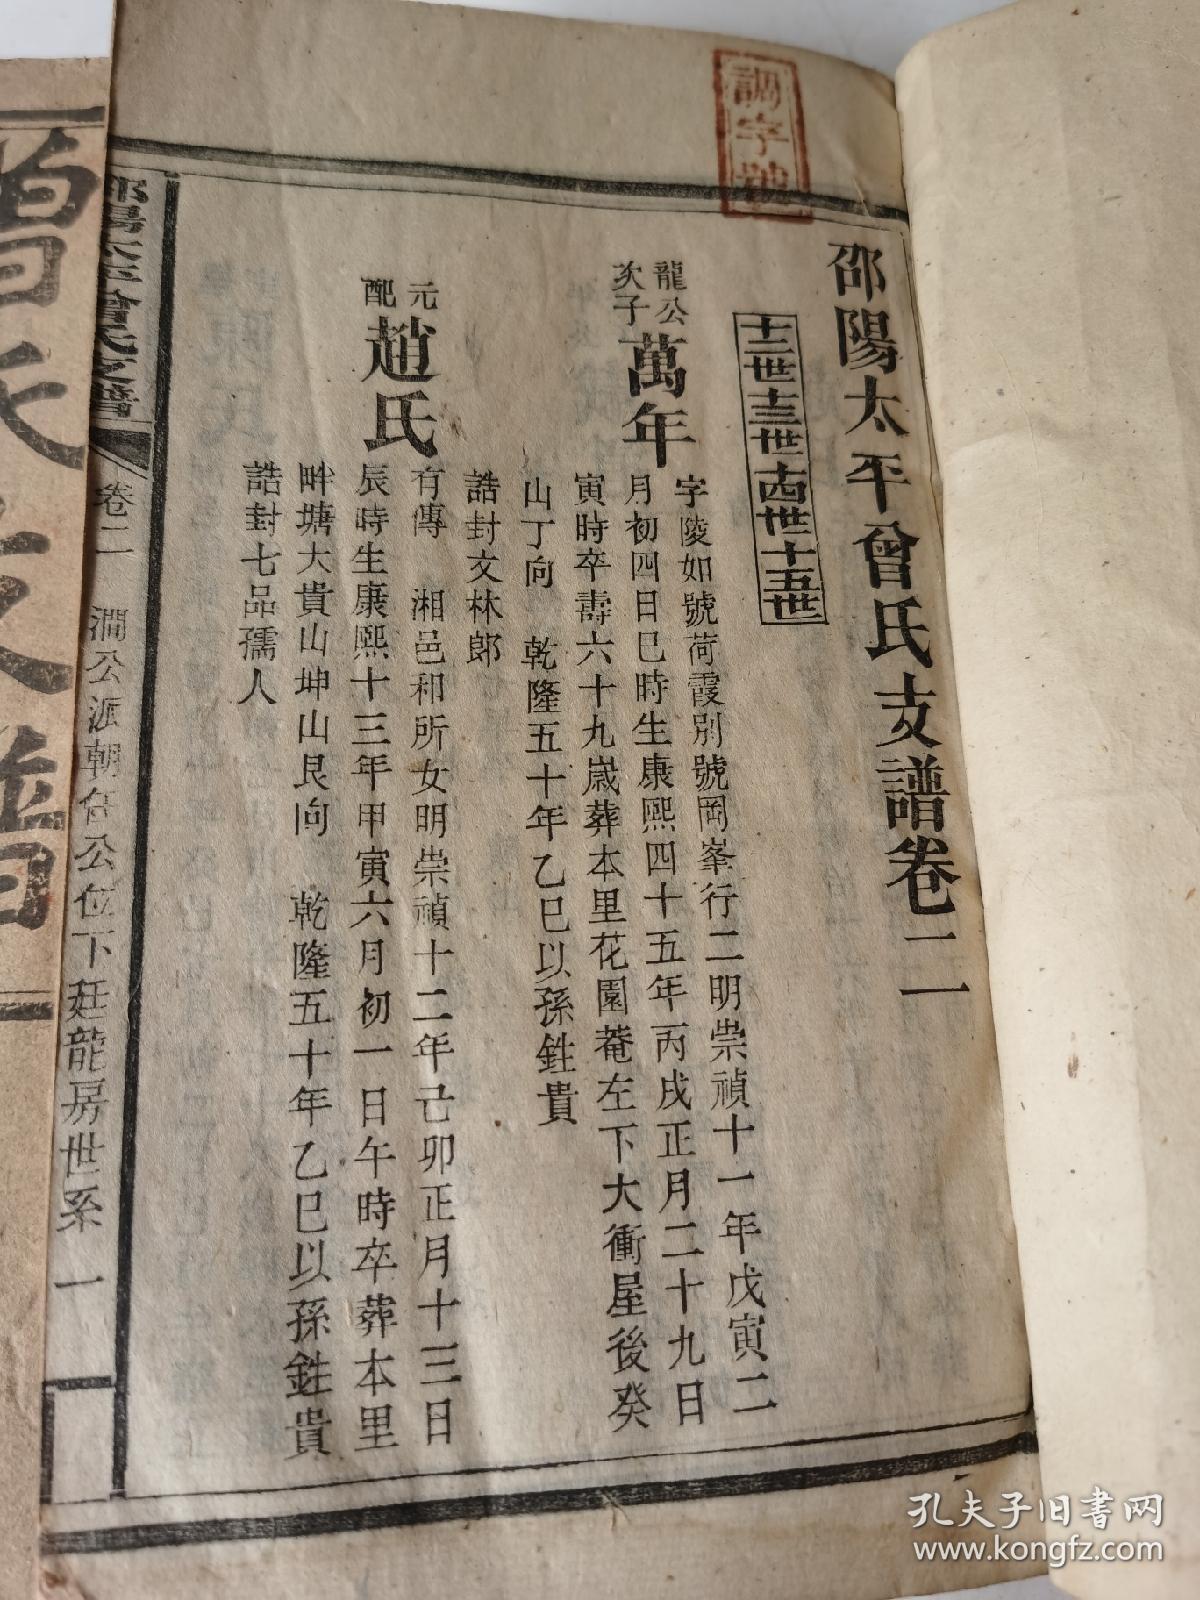 調字號
邵陽太平曾氏支譜卷二
十二世十三世十四世十五世
龍公次子
萬年
字陵如號荷霞別號岡峯行二明崇禎十一年戊寅二
月初四日巳時生康熙四十五年丙戌正月二十九日
寅時卒壽六十九歲葬本里花園菴左下大衝屋後癸
山丁向 乾隆五十年乙巳以孫鉎貴
誥封文林郎
元配
趙氏
有傳 湘邑和所女明崇禎十二年己卯正月十三日
辰時生康熙十三年甲寅六月初一日午時卒葬本里
畔塘大貴山坤山艮向 乾隆五十年乙巳以孫鉎貴
誥封七品孺人
邵陽太平曾氏支譜
卷二 澗公派朝信公位下廷龍房世系 一
曾氏支譜
孔夫子旧书网
www.kongfz.com